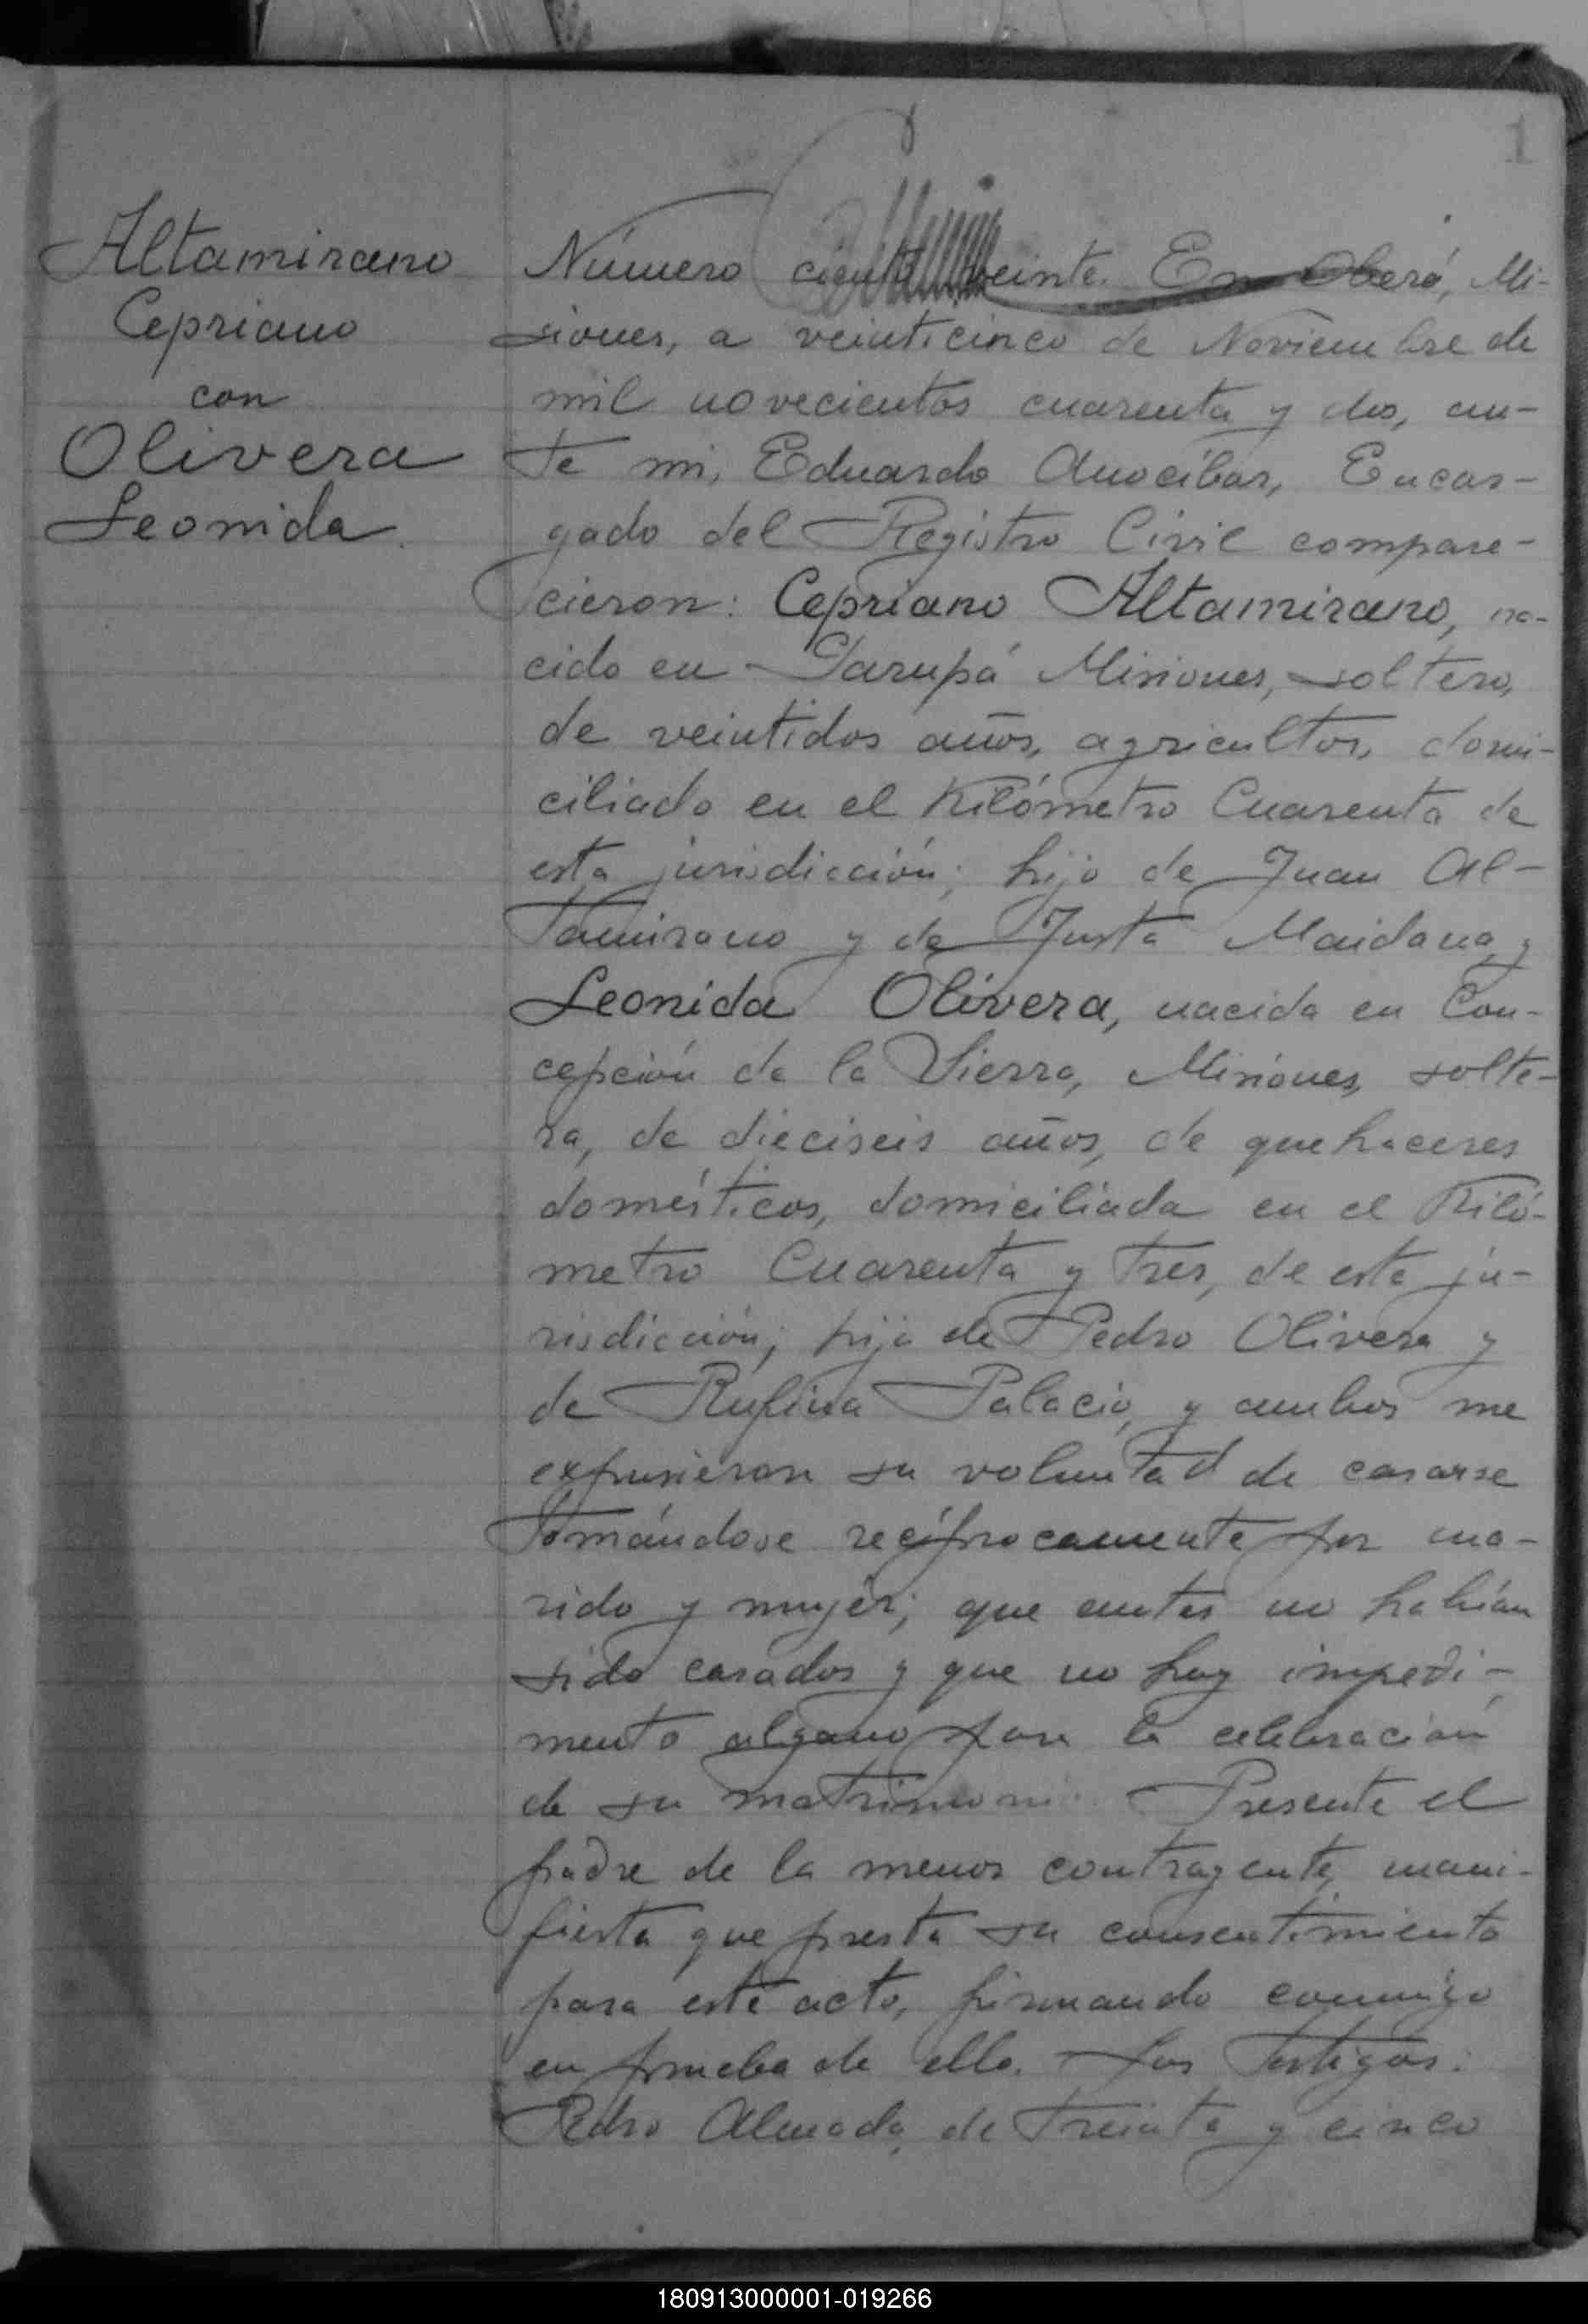 1
Altamirano
Cepriano
con
Olivera
Leonida.
Número ciento veinte. En Oberá, Mi-
siones, a veinticinco de Noviembre de
mil novecientos cuarenta y dos, an-
te mi, Eduardo Anocíbar, Encar-
gado del Registro Civil compare-
cieron: Cepriano Altamirano, na-
cido en Garupá Misiones, soltero,
de veintidos años, agricultor, domi-
ciliado en el Kilómetro Cuarenta de
esta jurisdicción; hijo de Juan Al-
tamirano y de Justa Maidana, y
Leonida Olivera, nacida en Con-
cepción de la Sierra, Misiones, solte-
ra, de dieciseis años, de quehaceres
domésticos, domiciliada en el Kiló-
metro Cuarenta y tres, de esta ju-
risdicción; hija de Pedro Olivera y
de Rufina Palacio, y ambos me
expusieron su voluntad de casarse
tomándose recíprocamente por ma-
rido y mujer; que antes no habían
sido casados y que no hay impedi-
mento alguno para la celebración
de su matrimonio. Presente el
padre de la menor contrayente, mani-
fiesta que presta su consentimiento
para este acto, firmando conmigo
en prueba de ello. Los testigos:
Pedro Almada, de treinta y cinco
180913000001-019266